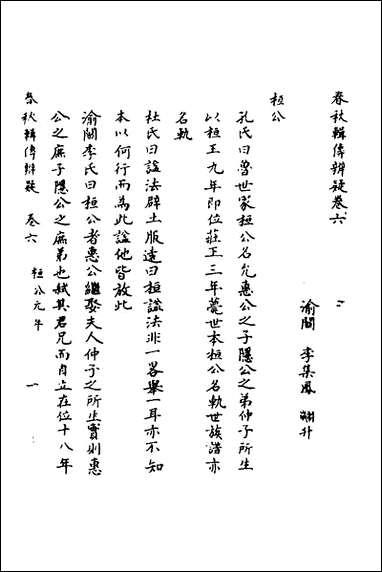 春秋輯傳辨疑卷六
渝關 李集鳳 翽升
桓公
孔氏曰魯世家桓公名允惠公之子隱公之弟仲子所生
以桓王九年即位莊王三年薨世本桓公名軌世族譜亦
名軌
杜氏曰諡法辟土服遠曰桓諡法非一畧舉一耳亦不知
本以何行而為此諡他皆放此
渝關李氏曰桓公者惠公繼娶夫人仲子之所生實則惠
公之庶子隱公之庶弟也弑其君兄而自立在位十八年
春秋輯傳辨疑 卷六 桓公元年 一